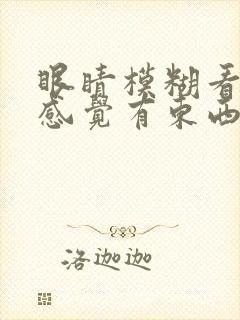 眼睛模糊看
感覺有東西
洛迦迦